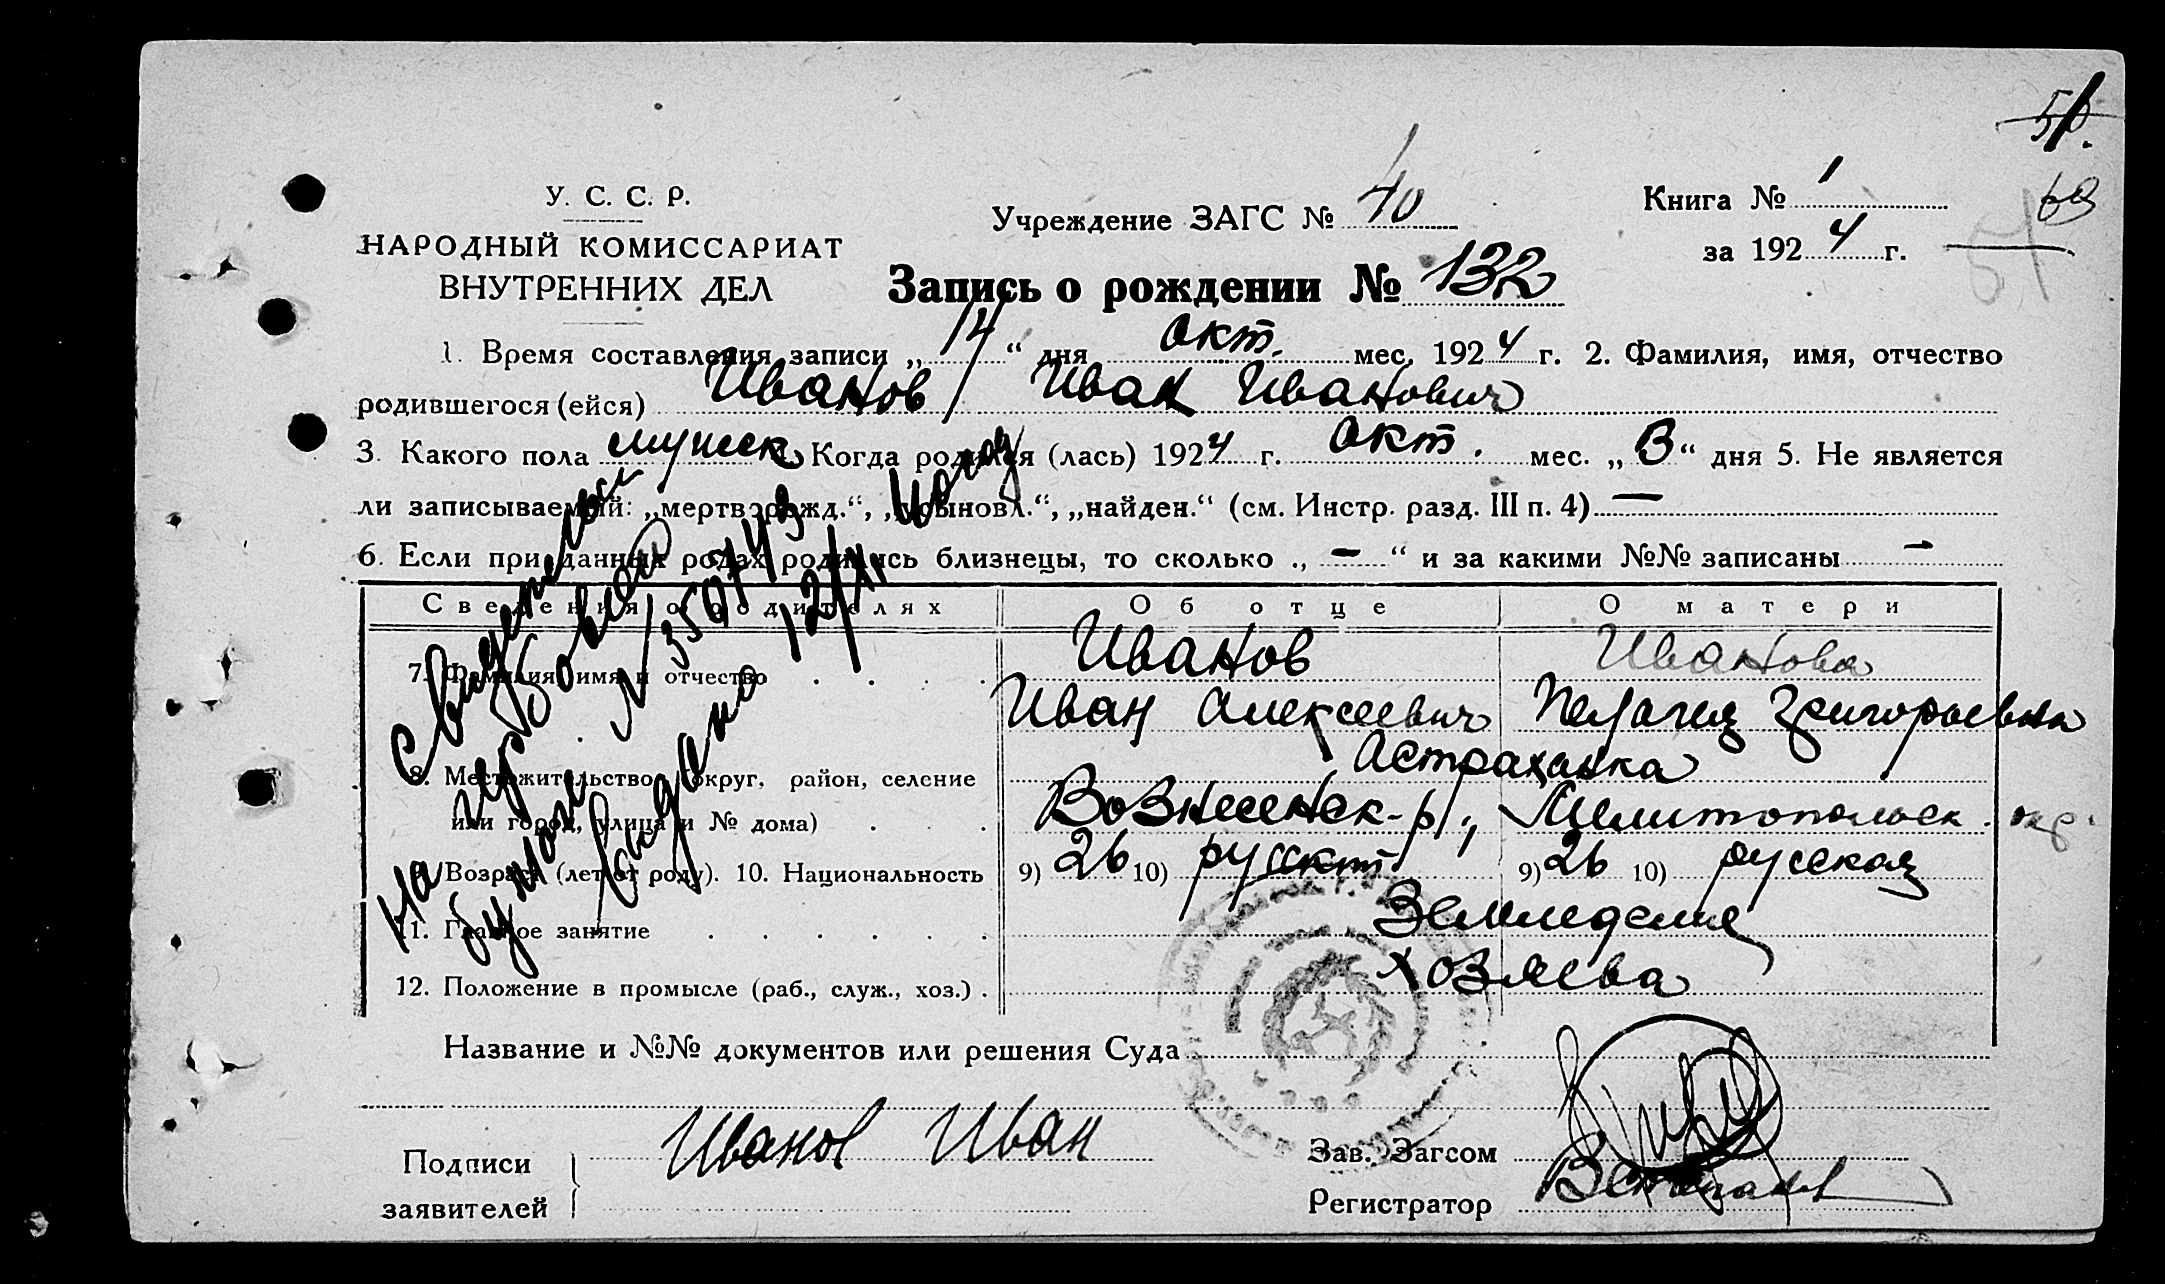 51.
У. С. С. Р.
НАРОДНЫЙ КОМИССАРИАТ
ВНУТРЕННИХ ДЕЛ
Учреждение ЗАГС № 40
Книга № 1
за 1924 г.
Запись о рождении № 132
1. Время составления записи „14“ дня окт. мес. 1924 г. 2. Фамилия, имя, отчество
родившегося (ейся) Иванов Иван Иванович
3. Какого пола мужск 4. Когда родился (лась) 1924 г. окт. мес. „13“ дня 5. Не является
ли записываемый: „мертворожд.“, „усыновл.“, „найден.“ (см. Инстр. разд. III п. 4) —
6. Если при данных родах родились близнецы, то сколько „ — “ и за какими №№ записаны —
Сведения о родителях Об отце О матери
7. Фамилия, имя и отчество Иванов Иванова
Иван Алексеевич Пелагея Григорьевна
8. Местожительство (округ, район, селение Астраханка
или город, улица и № дома) Вознесенск. р., Мелитопольск. окр.
9. Возраст (лет от роду). 10. Национальность 9) 26 10) русск 9) 26 10) русская
11. Главное занятие Земледелие
12. Положение в промысле (раб., служ., хоз.) хозяева
Название и №№ документов или решения Суда
Подписи
заявителей
Иванов Иван
Зав. Загсом
Регистратор
Свидетельс
на гербовой
бумаге. N 350743
выдано 12/XI